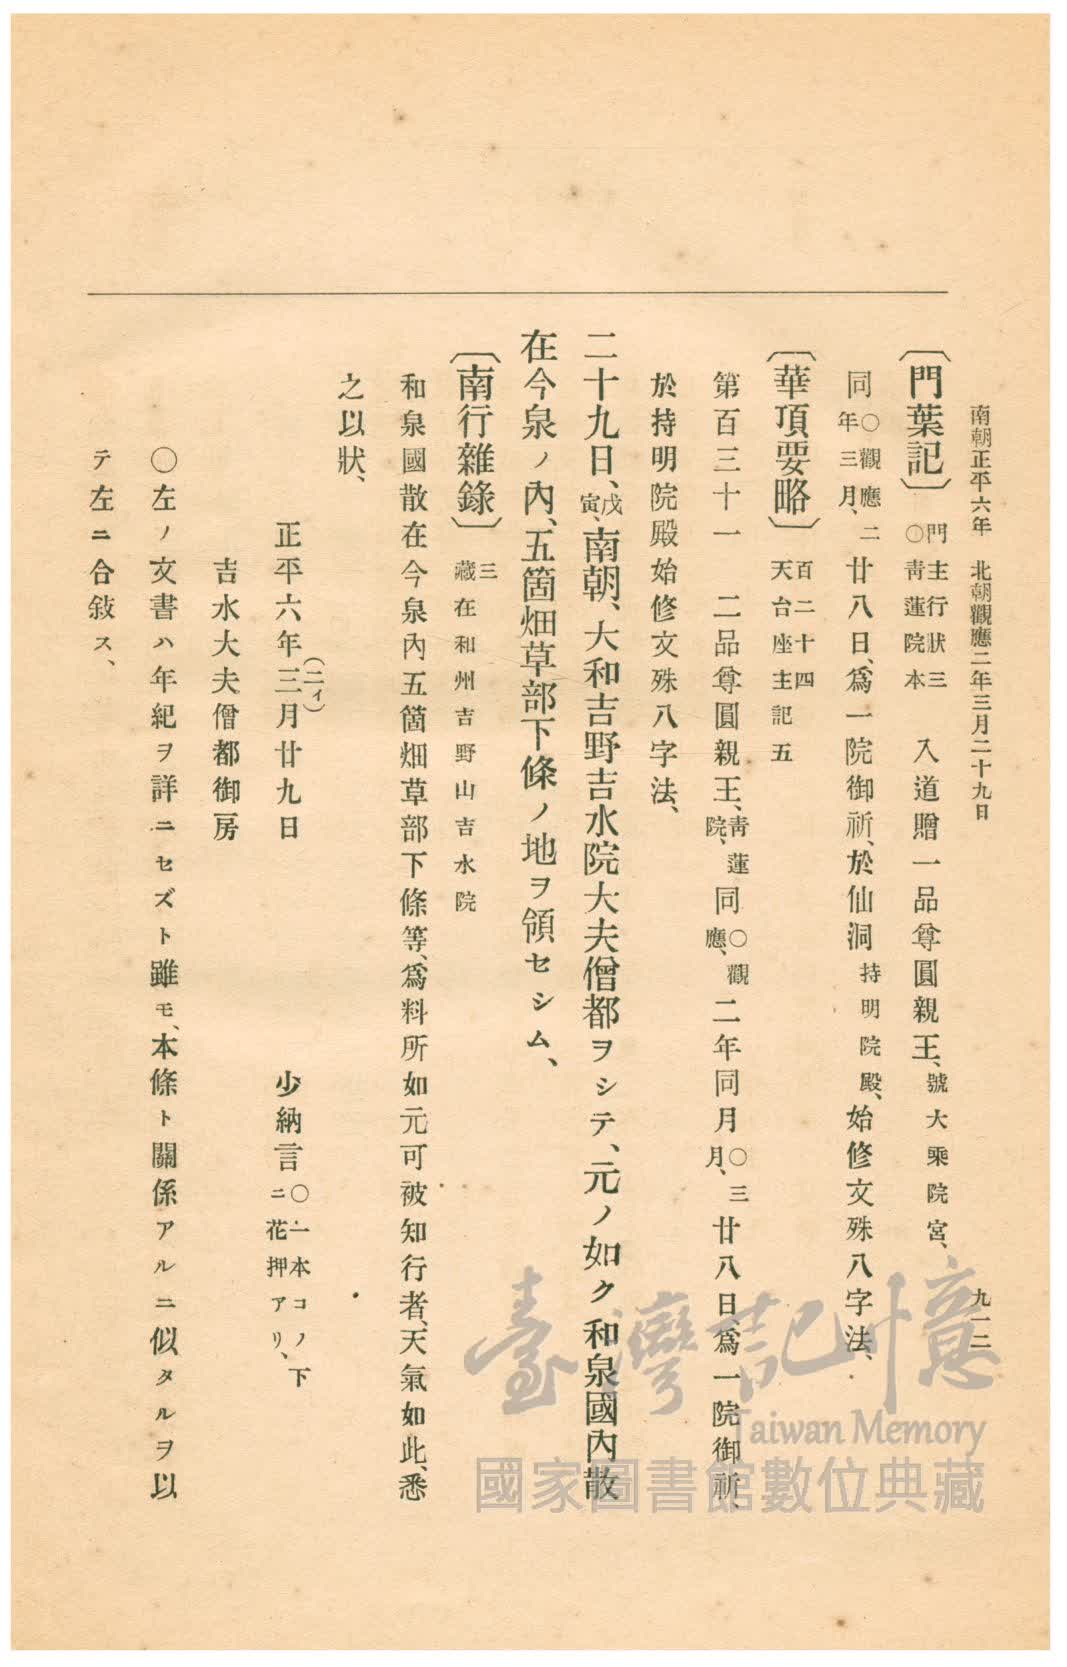 南朝正平六年 北朝觀應二年三月二十九日 九一二
〔門葉記〕 門主行狀三 ○靑蓮院本 入道贈一品尊圓親王、號大乘院宮、
同○觀應二年三月、廿八日、爲一院御祈、於仙洞持明院殿、始修文殊八字法、
〔華頂要略〕 百二十四 天台座主記五
第百三十一 二品尊圓親王、靑蓮院、同○觀應、二年同月○三月、廿八日爲一院御祈、
於持明院殿始修文殊八字法、
二十九日、戊寅、南朝、大和吉野吉水院大夫僧都ヲシテ、元ノ如ク和泉國內散
在今泉ノ內、五箇畑草部下條ノ地ヲ領セシム、
〔南行雜錄〕 三 藏在和州吉野山吉水院
和泉國散在今泉內五箇畑草部下條等、爲料所如元可被知行者、天氣如此、悉
之以狀、
正平六年三(二イ)月廿九日 少納言○一本コノ下ニ花押アリ、
吉水大夫僧都御房
○左ノ文書ハ年紀ヲ詳ニセズト雖モ、本條ト關係アルニ似タルヲ以
テ左ニ合敍ス、
臺灣記憶
Taiwan Memory
國家圖書館數位典藏